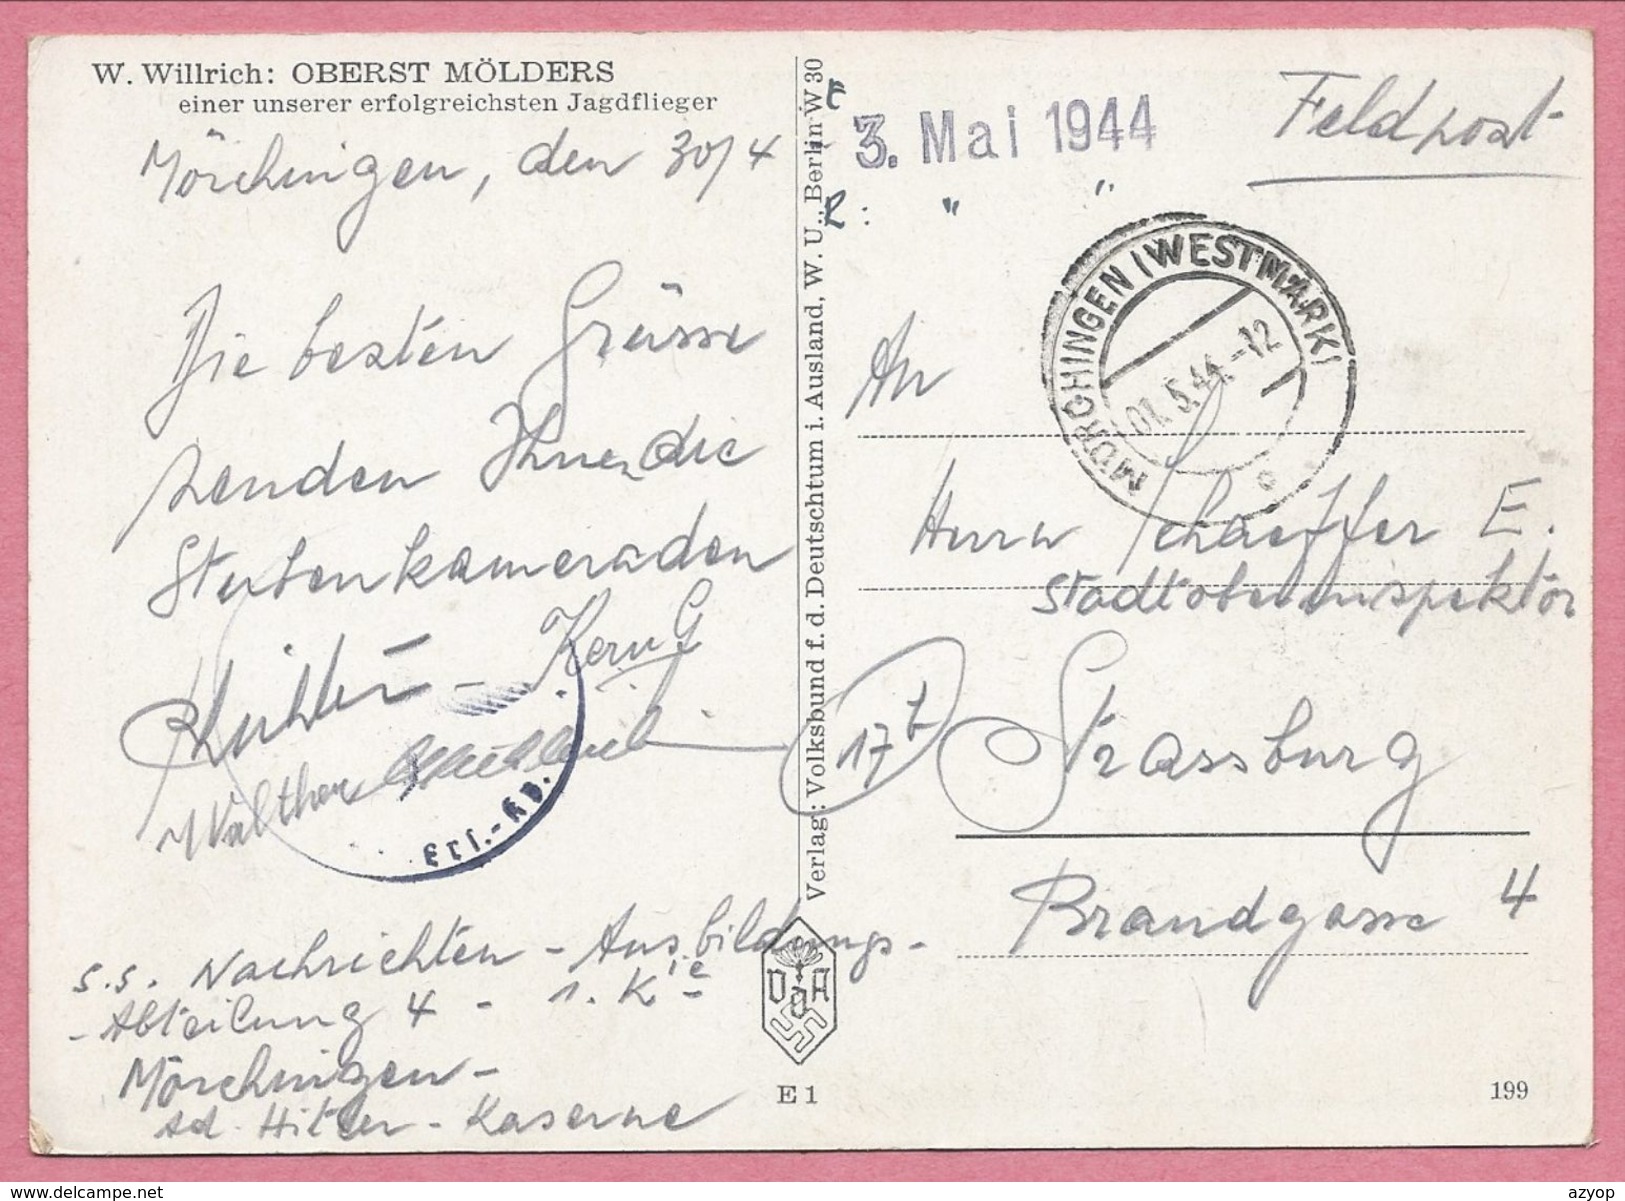 W. Willrich: OBERST MÖLDERS
einer unserer erfolgreichsten Jagdflieger
Mörchingen, den 30/4
Die besten Grüsse
senden Ihnen die
Stubenkameraden
Kern G
Walther
Erl.-Kp.
S.S. Nachrichten - Ausbildungs-
- Abteilung 4 - 1. Kie
Mörchingen -
Ad. Hitler - Kaserne
Verlag: Volksbund f. d. Deutschtum i. Ausland, W. U., Berlin W 30
VDA
E 1
E
3. Mai 1944
R: " "
Feldpost
MÖRCHINGEN (WESTMARK)
01.5.44.-12
c
An
Herrn Schaeffer E.
Stadtoberinspektor
17b Strassburg
Brandgasse 4
199
azyop